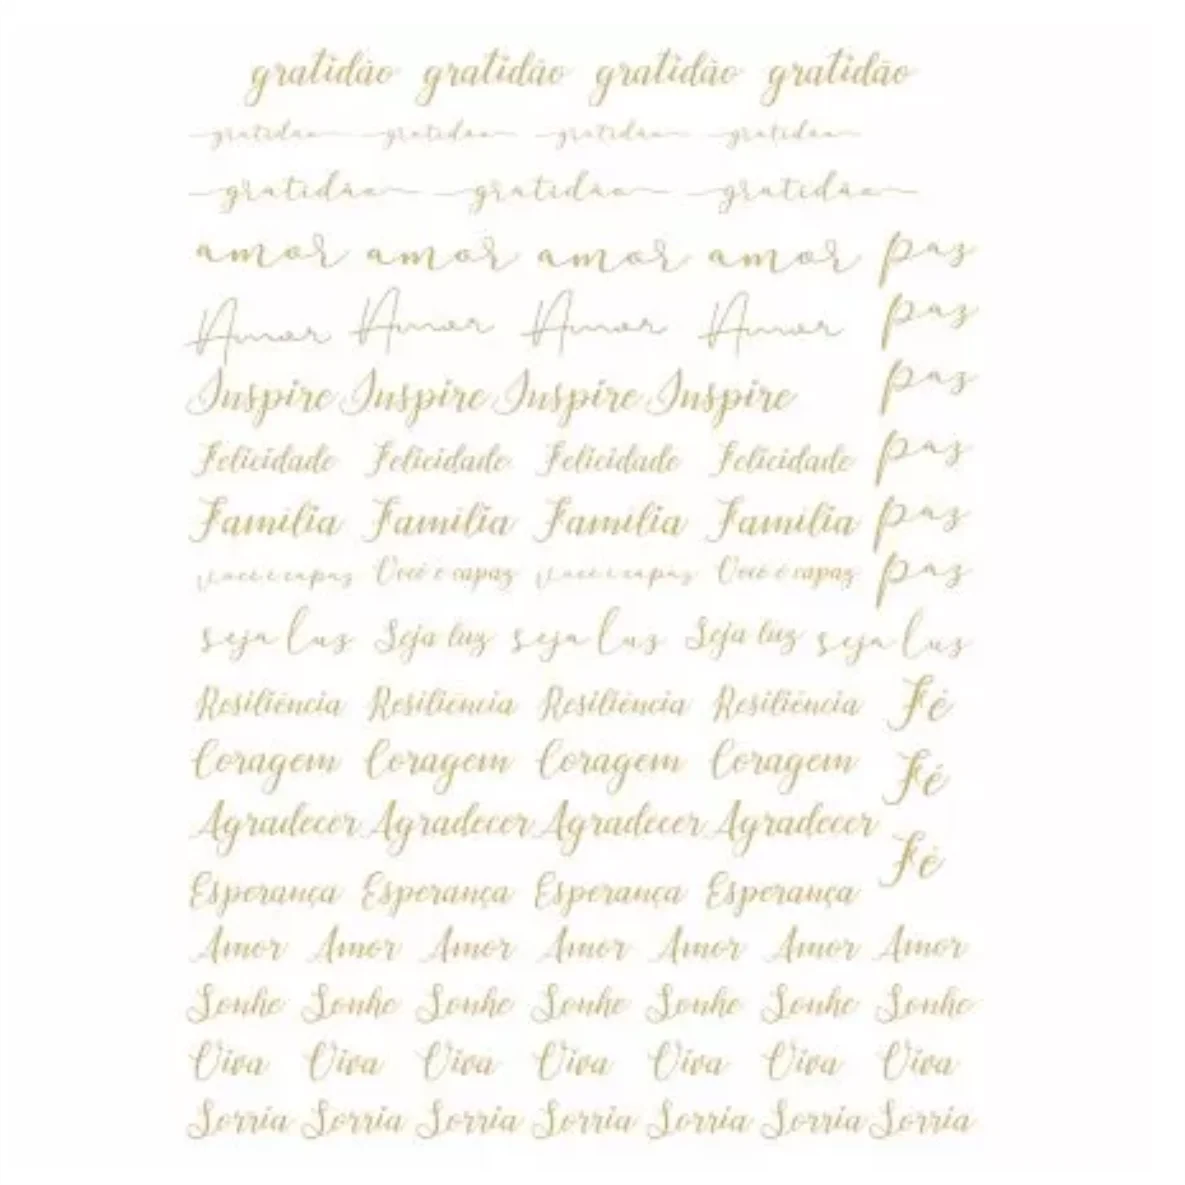 gratidão gratidão gratidão gratidão
gratidão gratidão gratidão gratidão
gratidão gratidão gratidão
amor amor amor amor paz
Amor Amor Amor Amor paz
Inspire Inspire Inspire Inspire paz
Felicidade Felicidade Felicidade Felicidade paz
Família Família Família Família paz
Você é capaz Você é capaz Você é capaz Você é capaz paz
seja luz Seja luz seja luz Seja luz seja luz
Resiliência Resiliência Resiliência Resiliência Fé
Coragem Coragem Coragem Coragem Fé
Agradecer Agradecer Agradecer Agradecer Fé
Esperança Esperança Esperança Esperança
Amor Amor Amor Amor Amor Amor Amor
Sonhe Sonhe Sonhe Sonhe Sonhe Sonhe Sonhe
Viva Viva Viva Viva Viva Viva Viva
Sorria Sorria Sorria Sorria Sorria Sorria Sorria